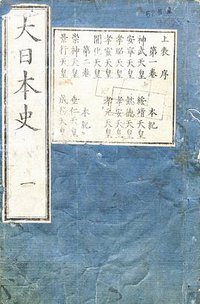 上表 序
第一卷 本紀
神武天皇 綏靖天皇
安寧天皇 懿德天皇
孝昭天皇 孝安天皇
孝靈天皇 孝元天皇
開化天皇
第二卷 本紀
崇神天皇 垂仁天皇
景行天皇 成務天皇
大日本史 一